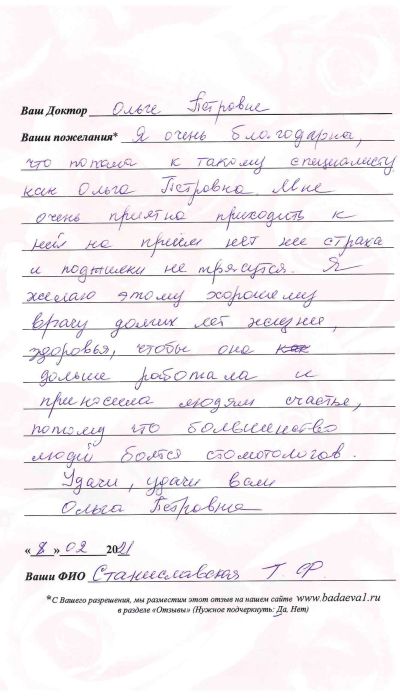 Ваш Доктор Ольге Петровне
Ваши пожелания* Я очень благодарна,
что попала к такому специалисту
как Ольга Петровна. Мне
очень приятно приходить к
ней на приём нет не страха
и поджилки не трясутся. Я
желаю этому хорошему
врачу долгих лет жизни,
здоровья, чтобы она как
дольше работала и
приносила людям счастье,
потому что большенство
людей боятся стомотологов.
Удачи, удачи вам
Ольга Петровна
« 8 » 02 2021
Ваши ФИО Станиславская Т. Ф.
*С Вашего разрешения, мы разместим этот отзыв на нашем сайте www.badaeva1.ru
в разделе «Отзывы» (Нужное подчеркнуть: Да, Нет)